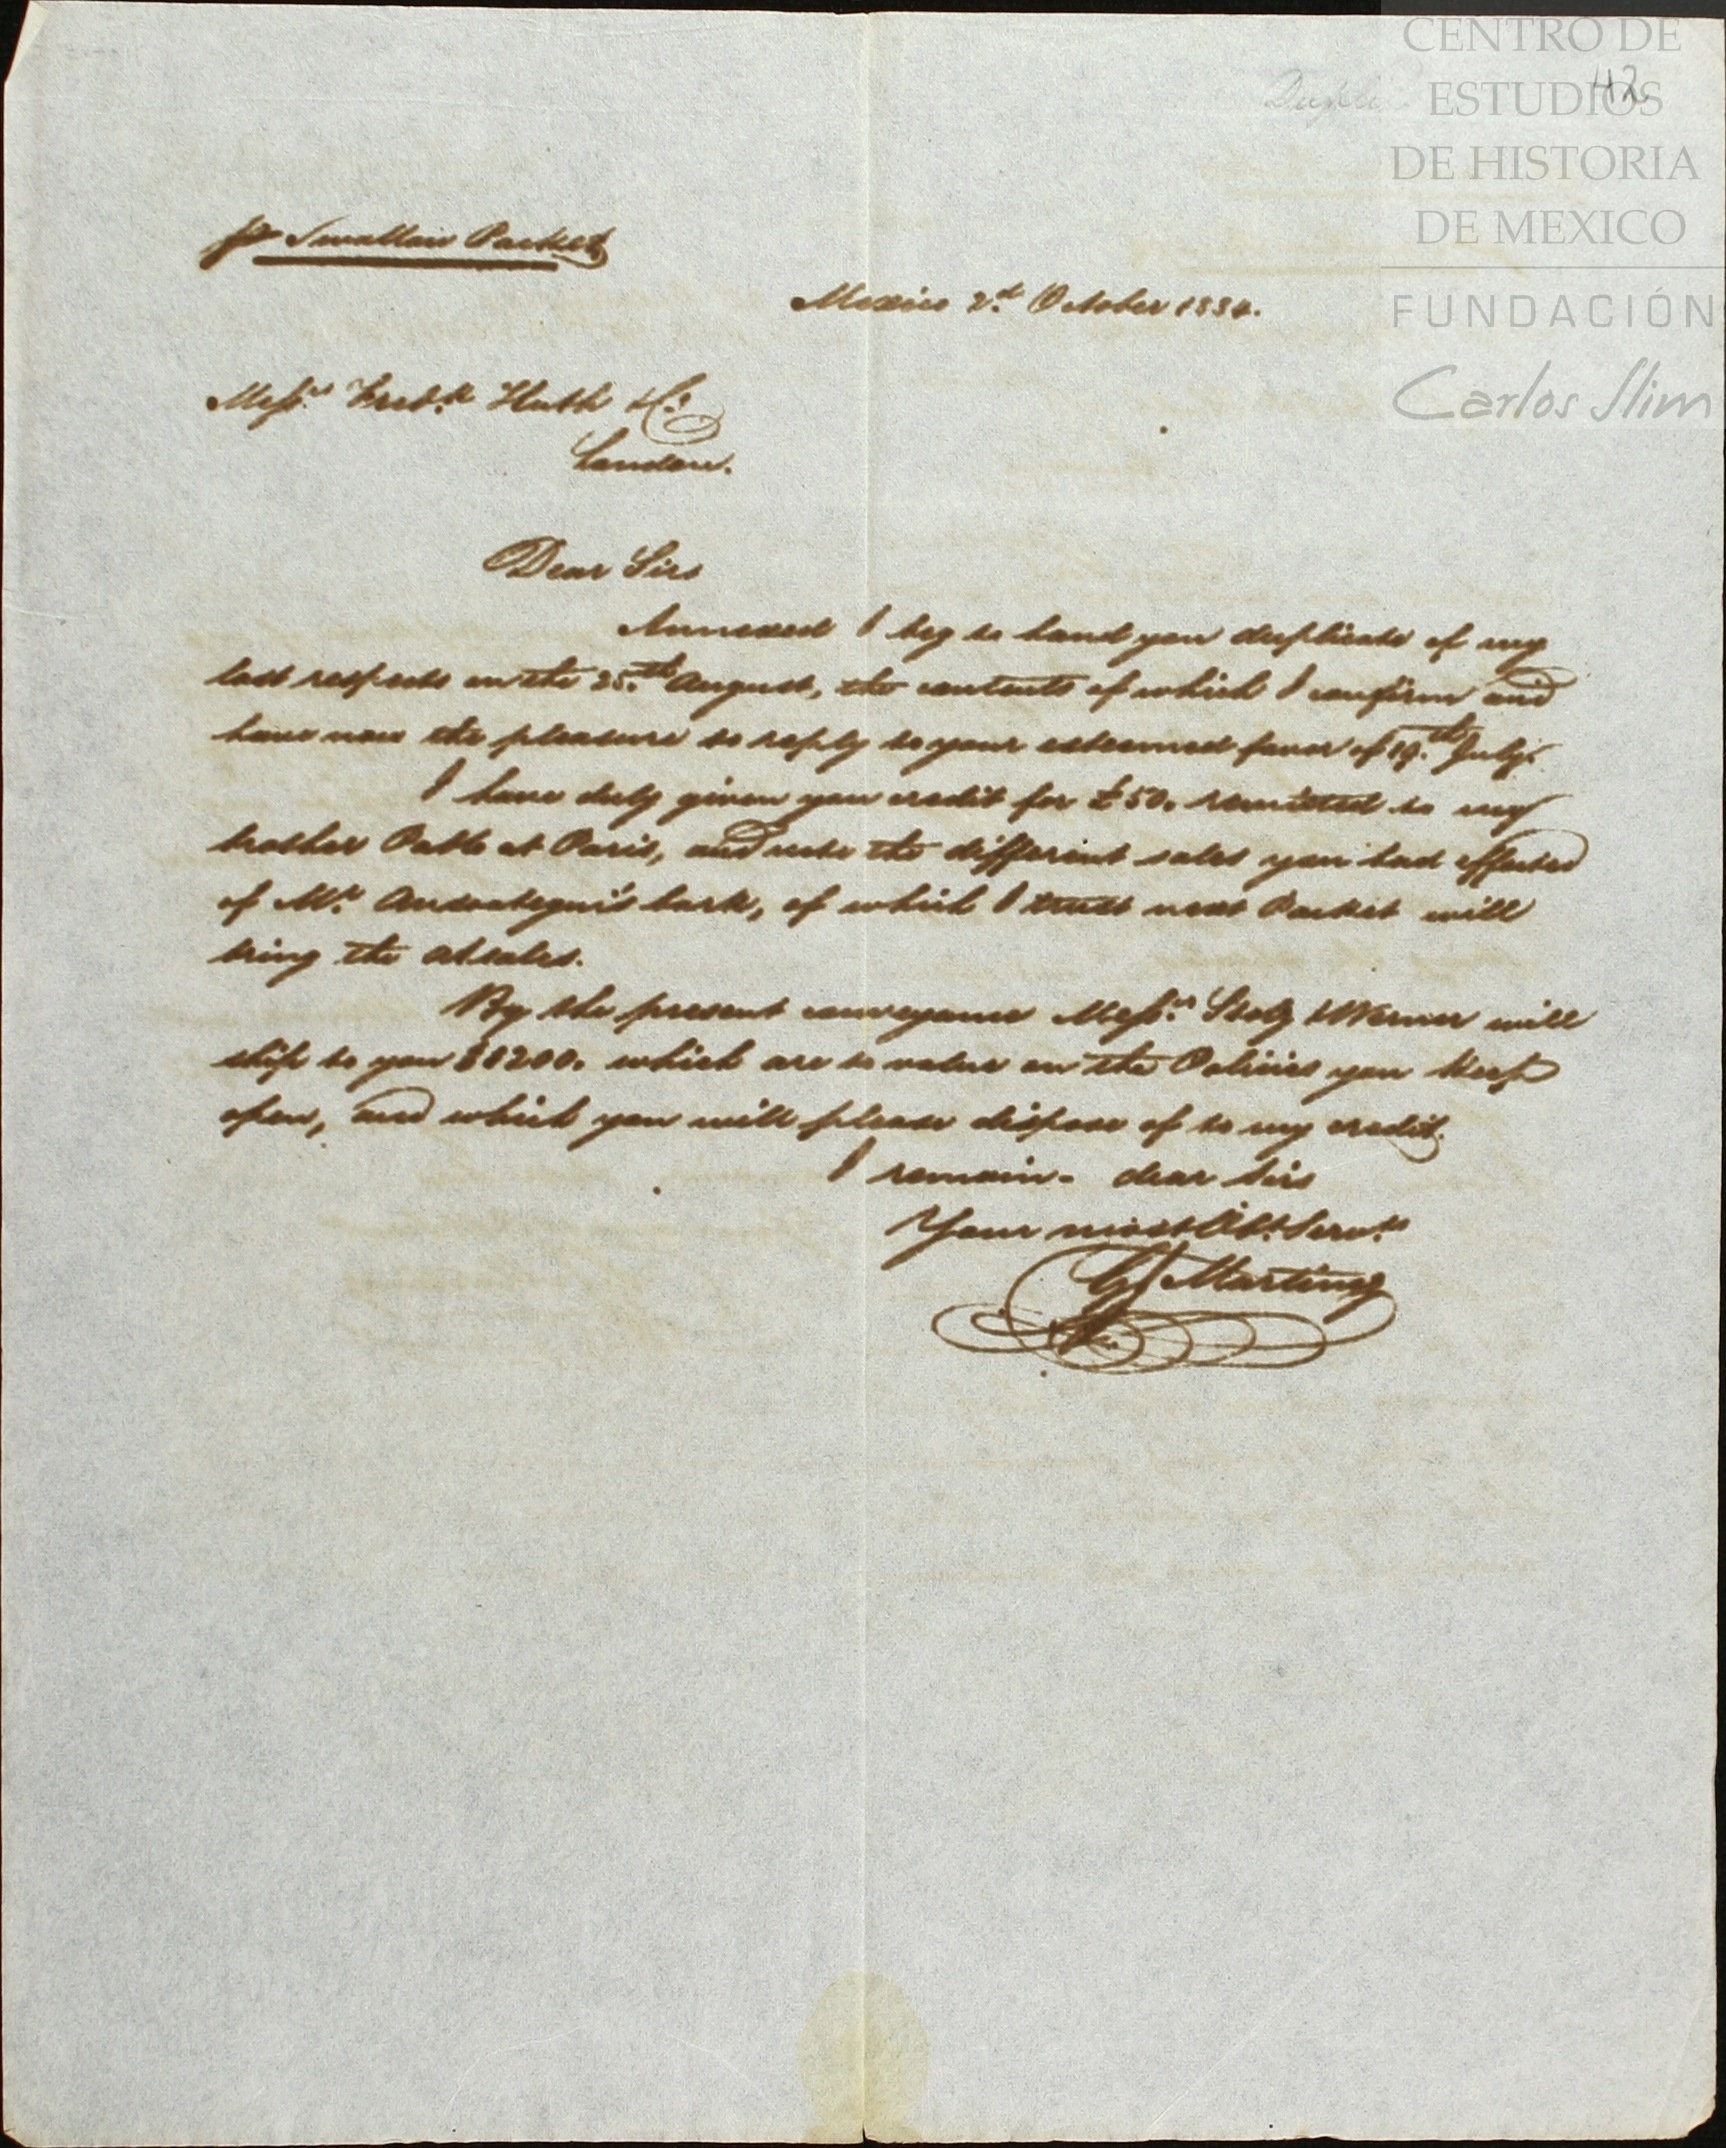 CENTRO DE
ESTUDIOS
DE HISTORIA
DE MEXICO
FUNDACIÓN
Carlos Slim
42
pr Swallow Packet
Mexico 2.d October 1834.
Mess.rs Fred.k Huth & Co.
London.
Dear Sirs
Annexed I beg to hand you duplicate of my
last respects on the 25.th August, the contents of which I confirm and
have now the pleasure to reply to your esteemed favor of 19.th July.
I have duly given you credit for £50. remitted to my
brother Pablo at Paris, and note the different sales you had effected
of M.r Ansoategui's bark, of which I trust next Packet will
bring the a/sales.
By the present conveyance Mess.rs Stolz & Werner will
ship to you $ 8200. which are to value on the Policies you keep
open, and which you will please dispose of to my credit.
I remain. dear Sirs
Your most Ob.t Serv.t
Martinez